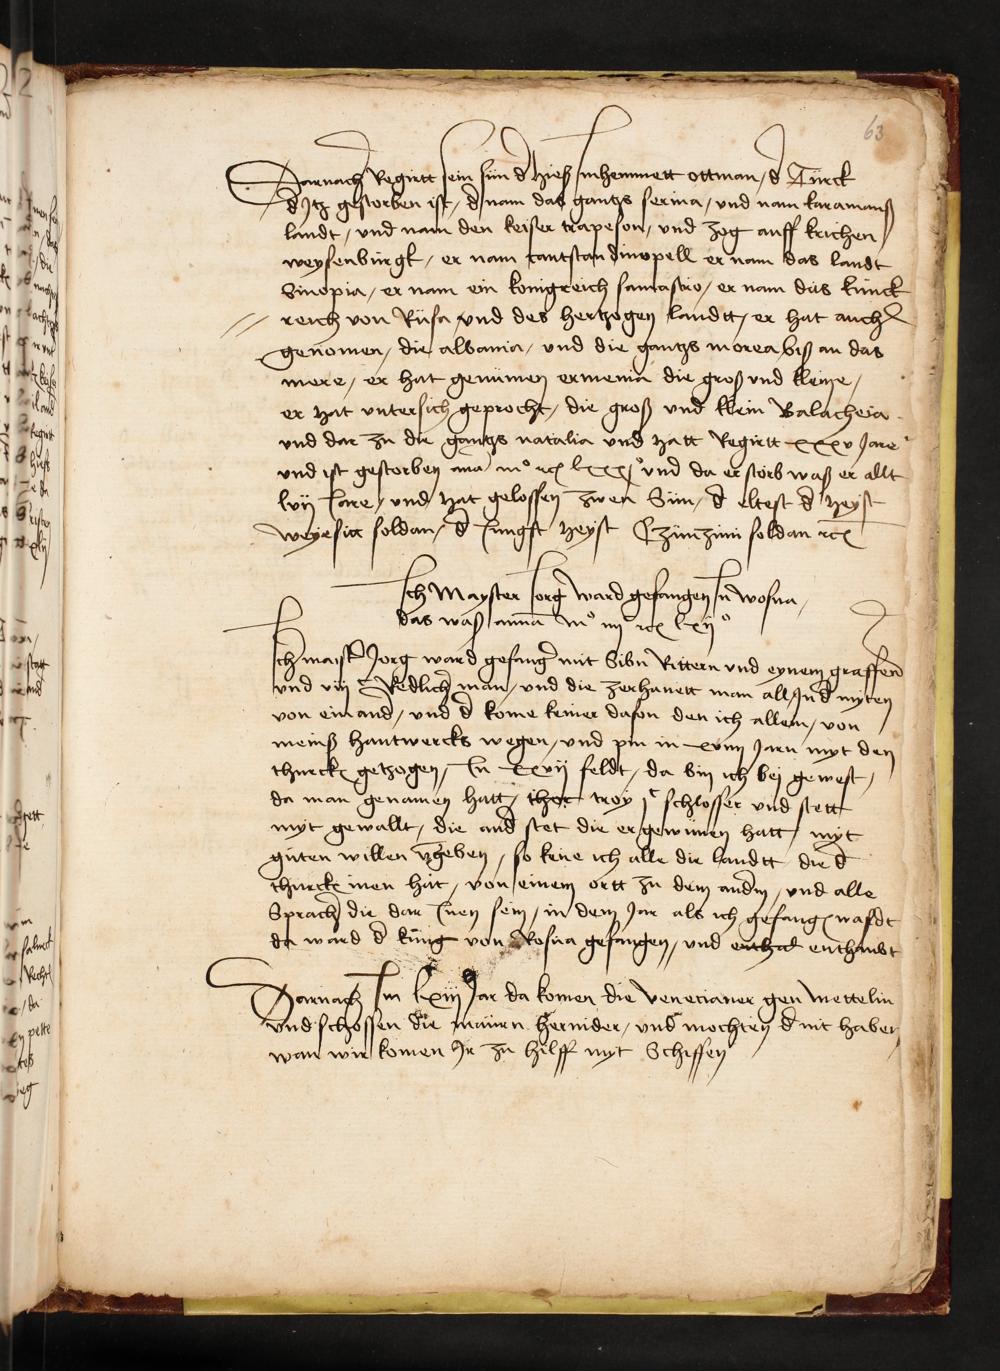 63
Darnach Regirtt sein sün d hieß mhemmett ottman / d Türck
d Jtz gestorben ist / d nam das gantzs serina / und nam karamanß
landt / und nam den keiser trapeson / und zog auff krichen
weysenbürgk / er nam cantstandinopell er nam das landt
Sinopia / er nam ein konigreich samastro / er nam düs künck
reich von Rüsa und des hertzogen landtt / er hat auch
genomen / die albania / und die gantzs morea biß an das
mere / er hat genümen ermenia die groß und kleine /
er hat untersich geprocht / die groß und klein Balacheia
und dar zu die gantzs natalia und hatt Regirtt xxxv Jare
und ist gestorben und da er storb waß er allt
lvij Jare / und hat gelossen zwen Sün / d eltest d heyst
weyesitt soldan / d Jungst heyst Czimzimi soldan
Jch Mayster Jorg ward gefangen Jn wosna /
das waß anna mo iiij lxijo
Jch maist Jorg ward gefang mit Sibn Rittern und eynem graffen
und viij Redlich man / und die zerhauett man all Jnd myten
von einand / und d kome keiner dafon den ich allein / von
meinß hantwercks wegen / und pin in xviiij Jarn myt den
thurck getzogen / Jn xxvij feldt / da bin ich bei gewest /
da man genamen hatt / thor troy schlosser und stett
myt gewallt / die and stet die er gewünen hatt / myt
güten willen vgeben / so kene ich alle die landtt die d
thurck inen hat / von einem ortt zu dem andm / und alle
Sprach die dar Jnen sein / in dem Jar als ich gefang wafdt
da ward d küng von Rosna gefangen / und enthat enthaubt
Darnach Jm lxiij Jar da komen die venecianer gen mettelin
und schossen die maürn hernider / und mochten d nit haben
wan wir komen Jr zu hilff myt Schiffen